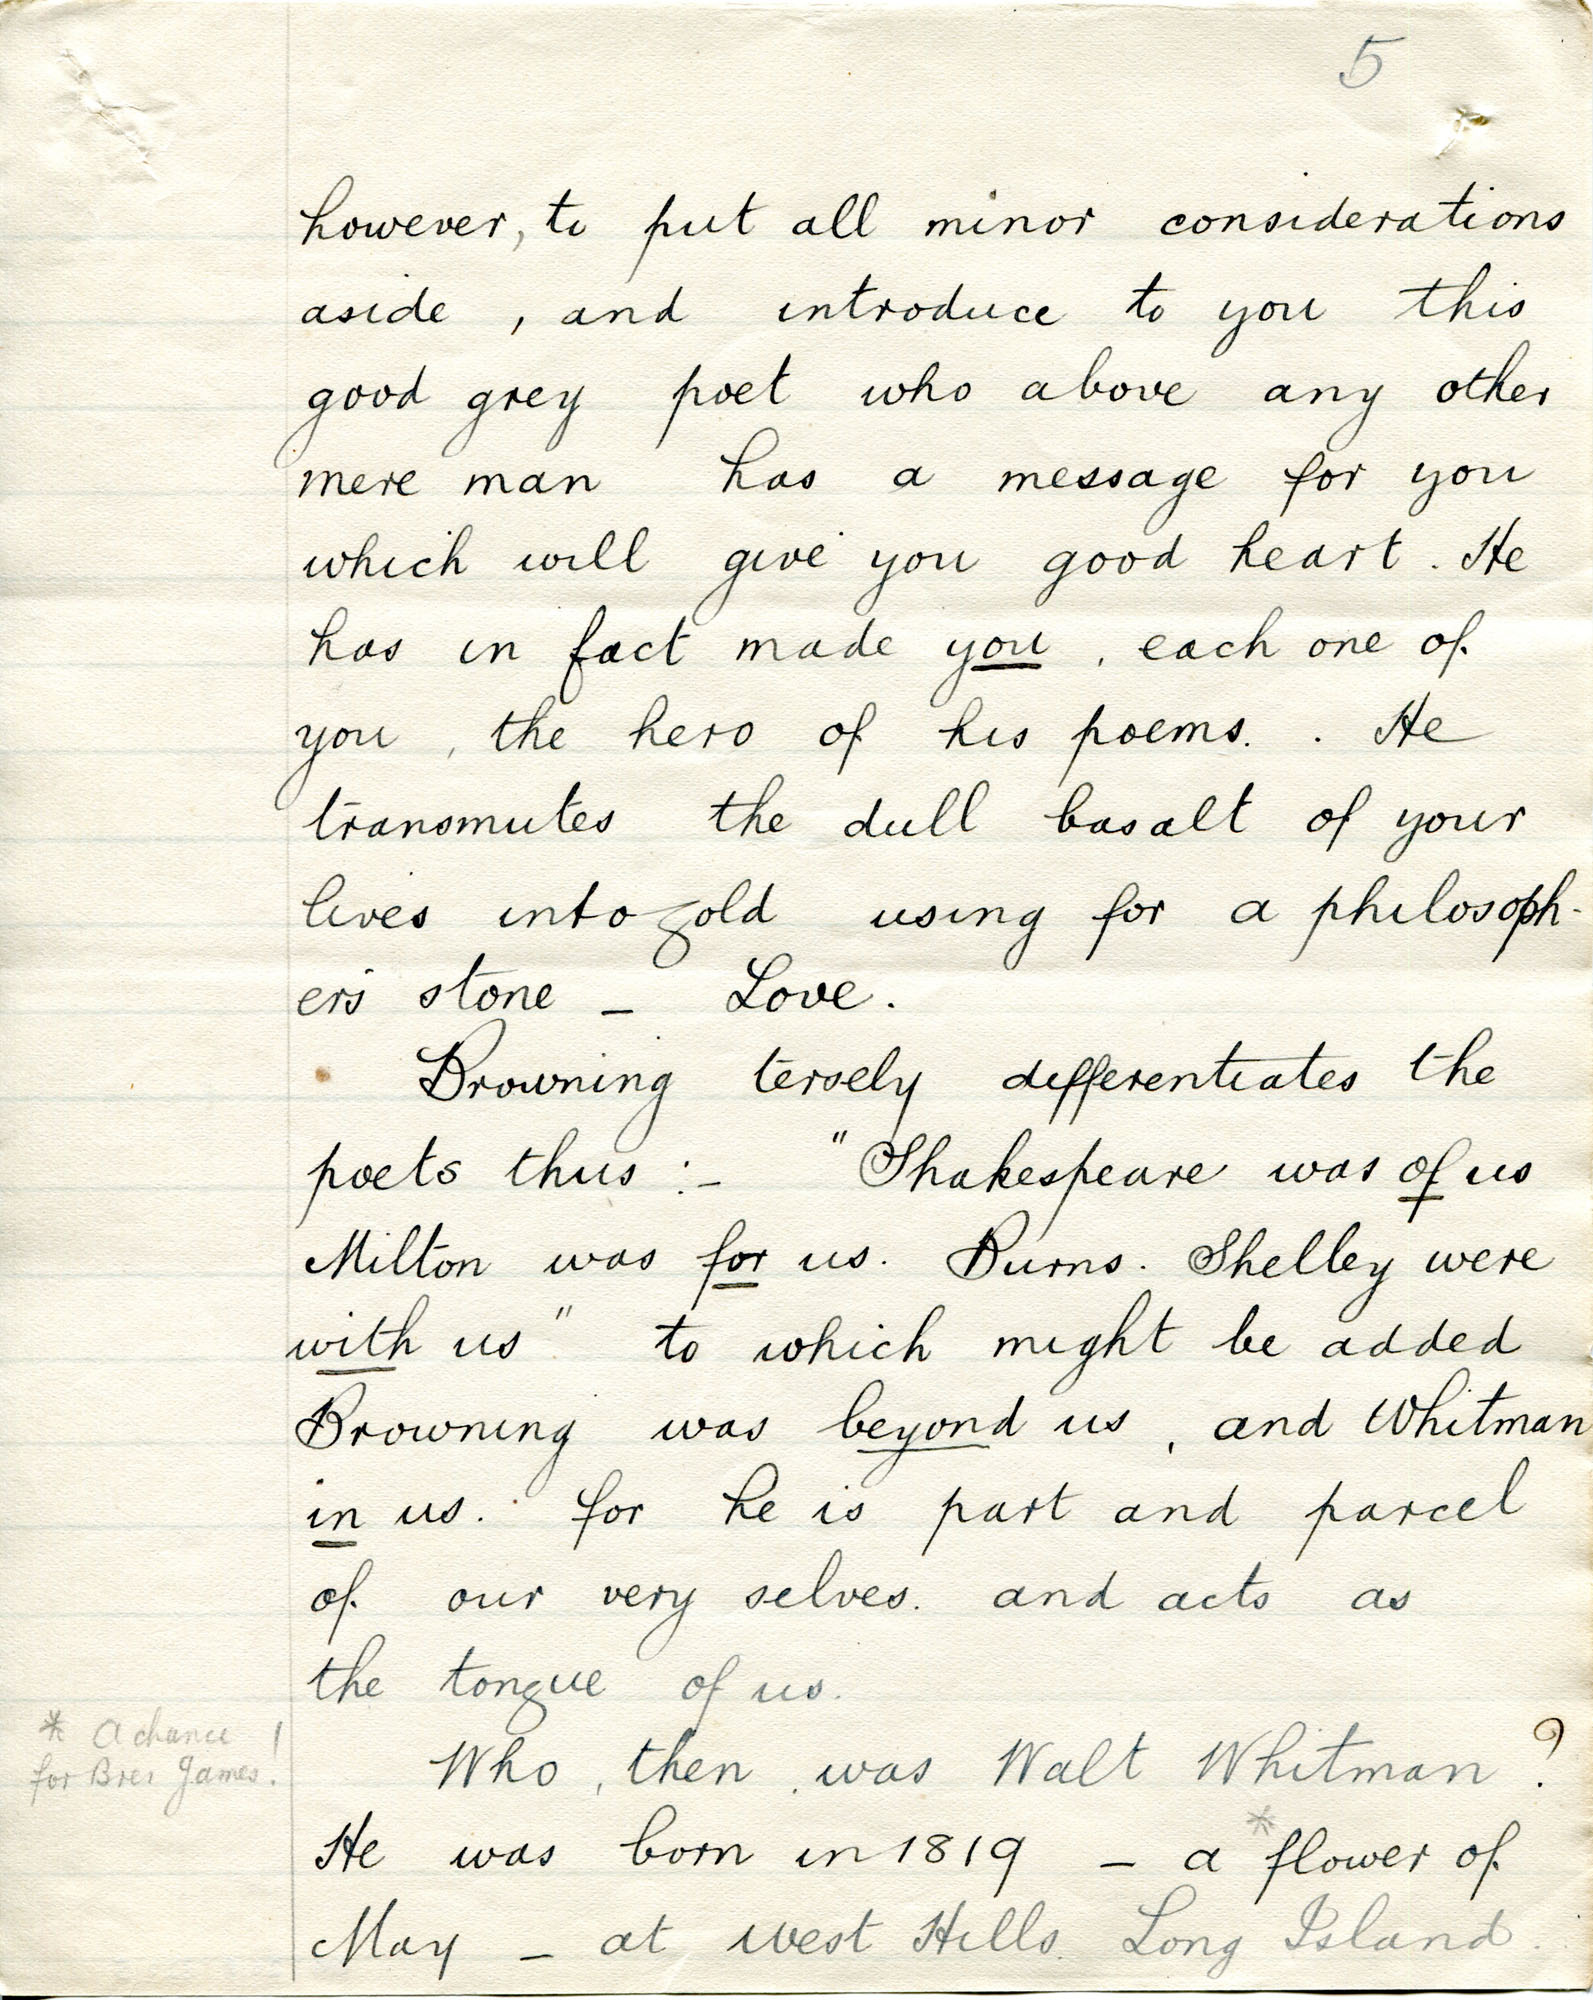 5
however, to put all minor considerations
aside, and introduce to you this
good grey poet who above any other
mere man has a message for you
which will give you good heart. He
has in fact made you, each one of
you, the hero of his poems. . He
transmutes the dull basalt of your
lives into gold using for a philosoph-
er's stone — Love.
Browning tersely differentiates the
poets thus :— "Shakespeare was of us
Milton was for us. Burns. Shelley were
with us" to which might be added
Browning was beyond us, and Whitman
in us. for he is part and parcel
of our very selves. and acts as
the tongue of us.
* A chance !
for Brer James!
Who, then, was Walt Whitman ?
He was born in 1819 — a *flower of
May — at West Hills. Long Island.